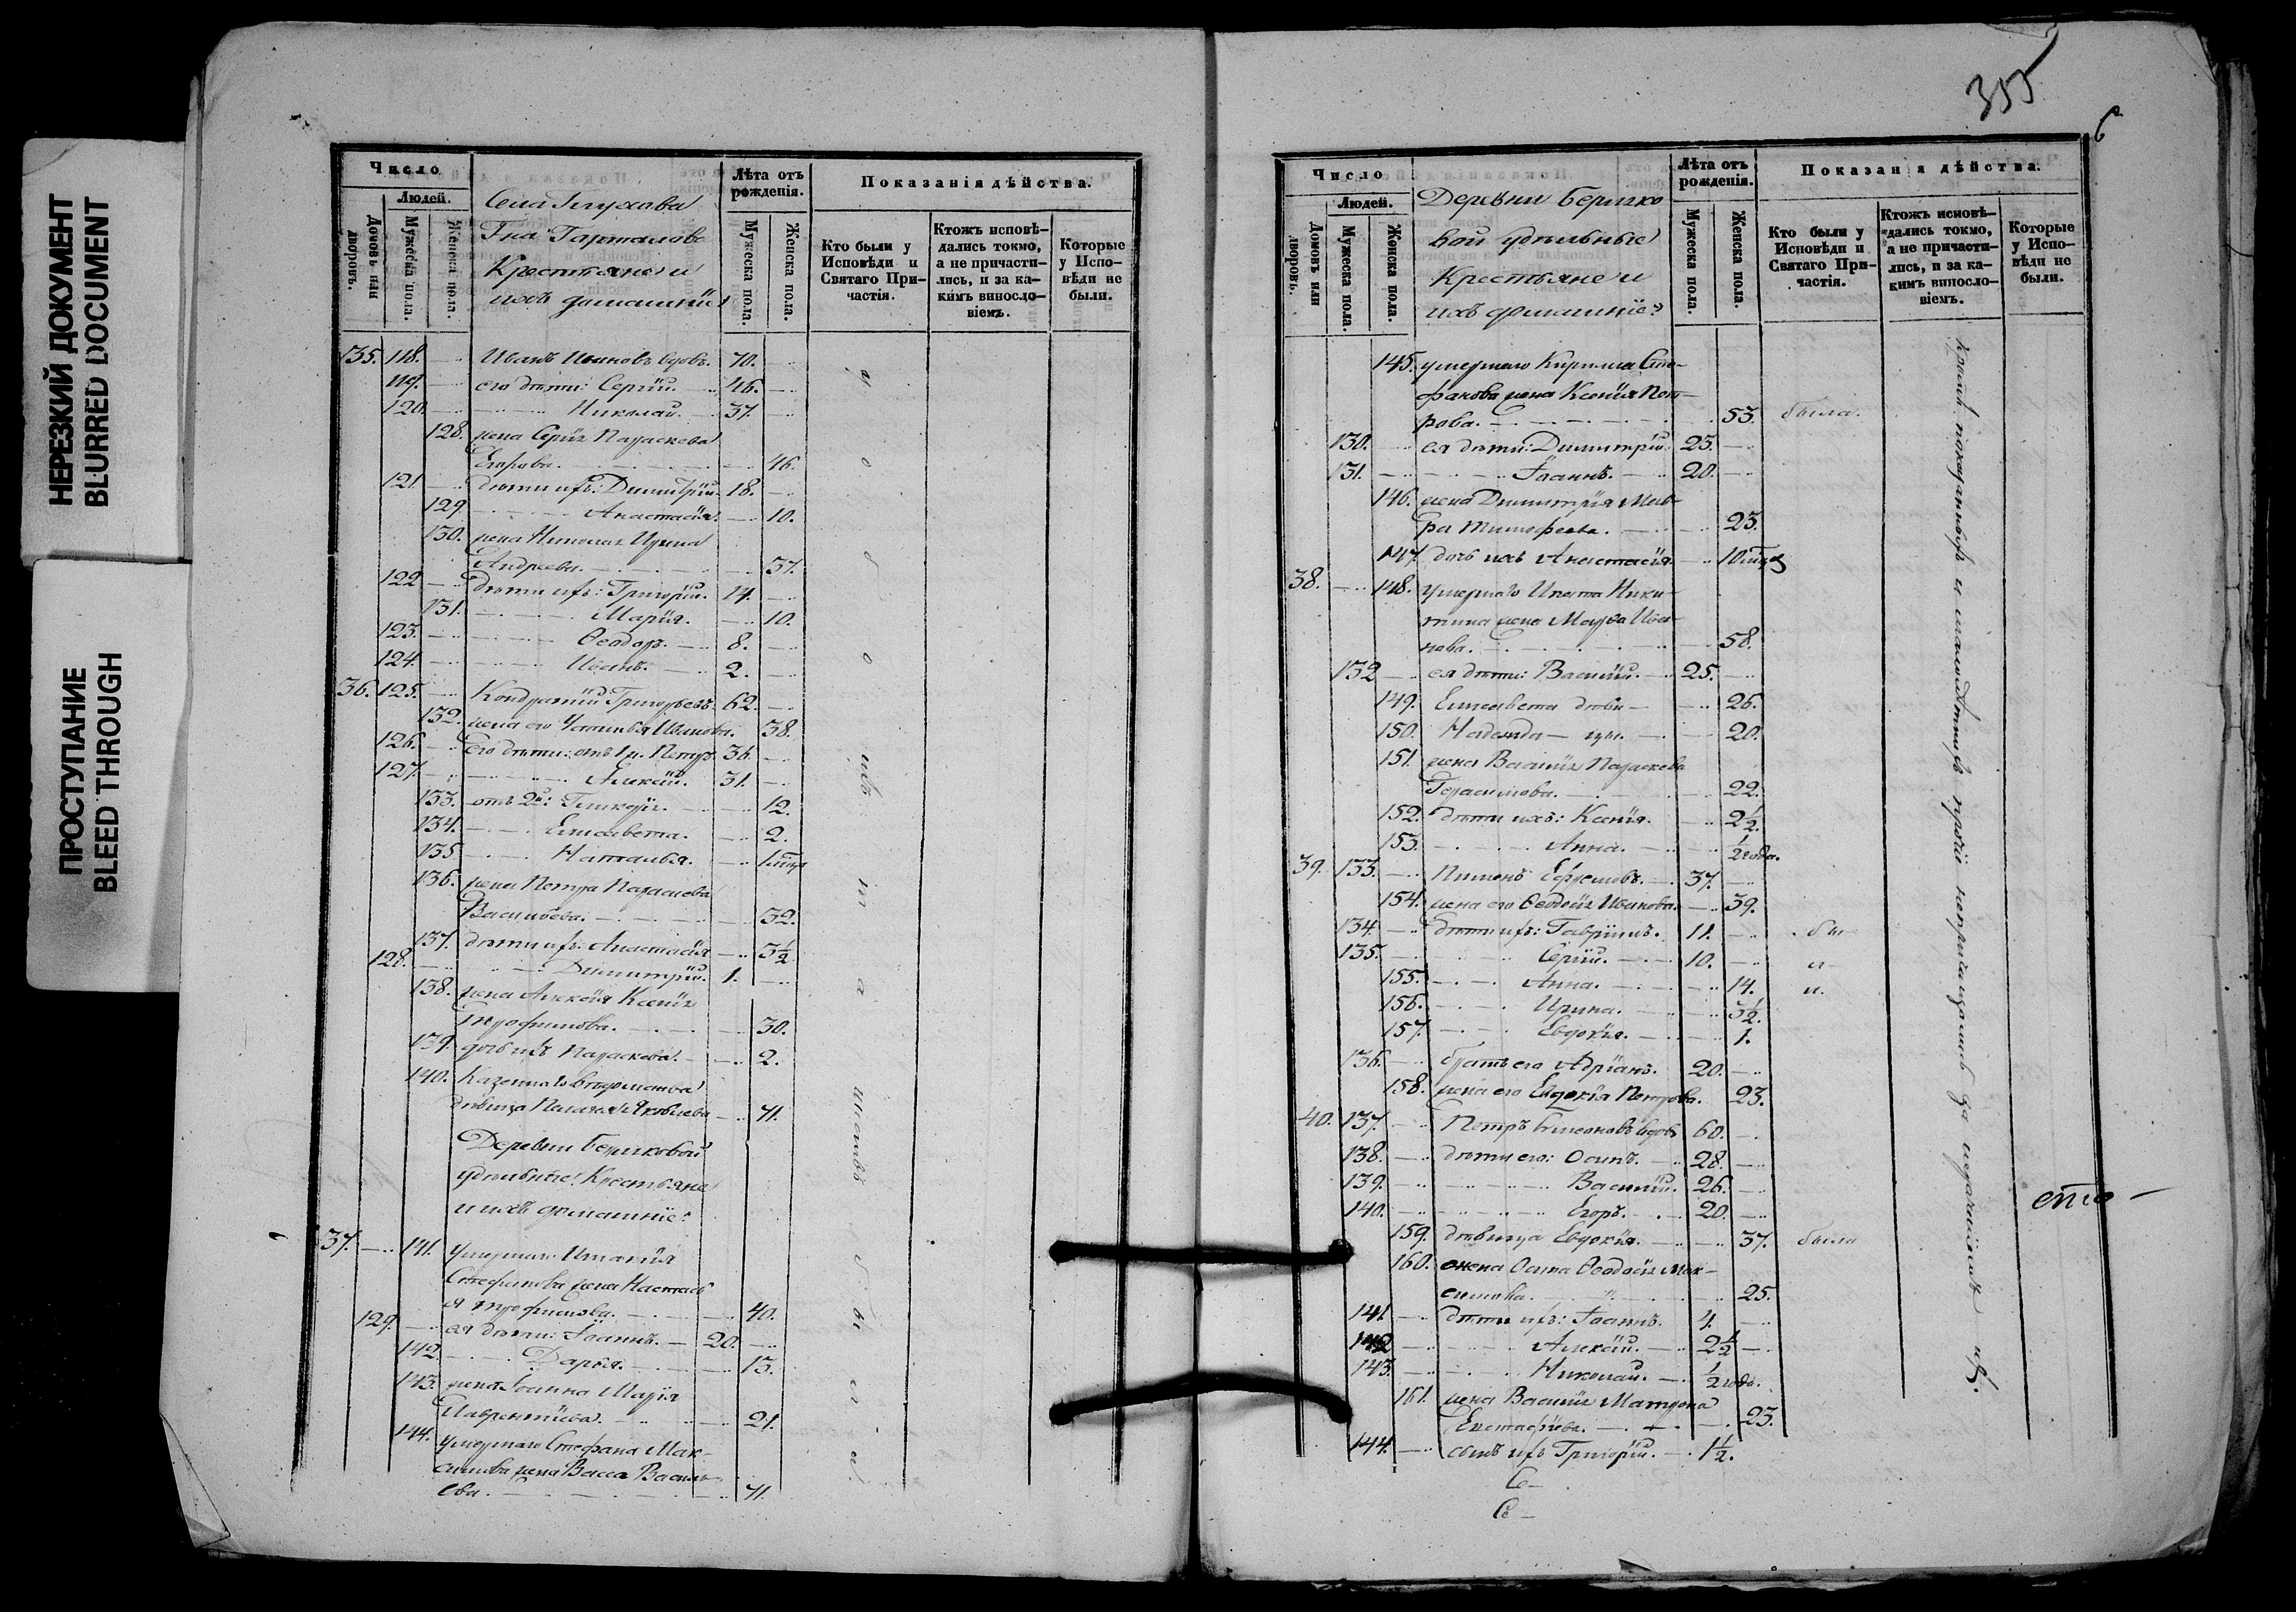 НЕРЕЗКИЙ ДОКУМЕНТ
BLURRED DOCUMENT
ПРОСТУПАНИЕ
BLEED THROUGH
Число
Людей.
Домовъ или дворовъ.
Мужеска пола.
Женска пола.
Села
Крестьяне и
ихъ домашніе
Лѣта отъ рожденія.
Мужеска пола.
Женска пола.
Показанія дѣйства.
Кто были у Исповѣди и Святаго Причастія.
Ктожъ исповѣдались токмо, а не причастились, и за какимъ винословіемъ.
Которые у Исповѣди не были.
35. 118. Иванъ Ивановъ вдовъ. 70.
119. его дѣти: Сергій. 46.
120. Николай. 37.
128. жена Сергія Параскева
Егорова. 46.
121. дѣти ихъ: Димитрій. 18.
129. Анастасія. 10.
130. жена Николая Ирина
Андреева. 37.
122. дѣти ихъ: Григорій. 14.
131. Марія. 10.
123. Ѳеодоръ. 8.
124. Иванъ. 2.
36. 125. Кондратій Григорьевъ. 62.
132. жена его Устинья Иванова. 38.
126. Его дѣти: отъ 1й. Петръ 36.
127. Алексѣй. 31.
133. отъ 2й: Гликерія. 12.
134. Елисавета. 2.
135. Наталья.
136. жена Петра Параскева
Васильева. 32.
137. дѣти ихъ: Анастасія 3½
128. Димитрій. 1.
138. жена Алексѣя Ксенія
Трофимова. 30.
139. дочь ихъ Параскева. 2.
140. Казеннаго вѣдомства
дѣвица Пелагея Яковлева 71.
Деревни
удѣльные Крестьяне
и ихъ домашніе:
37. 141. Умершаго
жена Настась
я Трофимова. 40.
129. ея дѣти: Іоаннъ. 20.
142. Дарья. 13.
143. жена Іоанна Марія
Лаврентіева. 21.
144. Умершаго Стефана Мак-
симова жена Васса Василь-
ева. 71.
355
6
Число
Людей.
Домовъ или дворовъ.
Мужеска пола.
Женска пола.
Деревни
вой удѣльные
Крестьяне и
ихъ домашніе:
Лѣта отъ рожденія.
Мужеска пола.
Женска пола.
Показанія дѣйства.
Кто были у Исповѣди и Святаго Причастія.
Ктожъ исповѣдались токмо, а не причастились, и за какимъ винословіемъ.
Которые у Исповѣди не были.
145. умершаго Кирилла Сте-
фанова жена Ксенія Пет-
рова. 53. была.
130. ея дѣти: Димитрій. 23.
131. Іоаннъ. 20.
146. жена Димитрія Мав-
ра Тимофеева. 23.
147. дочь ихъ Анастасія
38. 148. умершаго Ипата Ники-
тина жена Марѳа Ива-
нова. 58.
132. ея дѣти: Василій. 25.
149. Елисавета 26.
150. Надежда 20.
151. жена Василія Параскева
Герасимова. 22.
152. дѣти ихъ: Ксенія. 2½.
153. Анна. ½ года.
39. 133. Пименъ Ефремовъ. 37.
154. жена его Ѳеодосія Иванова. 39.
134. дѣти ихъ: Гавріилъ. 11. бы
135. Сергій. 10. л
155. Анна. 14. и.
156. Ирина. 3½.
157. Евдокія. 1.
136. братъ его Адріанъ. 20.
158. жена его Евдокія Петрова. 23.
40. 137. Петръ Симеоновъ вдовъ 60.
138. дѣти его: Осипъ. 28.
139. Василій. 26.
140. Егоръ. 20.
159. дѣвица Евдокія. 37. была
160. жена Осипа Ѳеодосія Мак-
симова. 25.
141. дѣти ихъ: Іоаннъ. 4.
142. Алексѣй. 2½
143. Николай. ½ года.
161. жена Василія Матрона
Евстафіева. 23.
144. сынъ ихъ Григорій. 1½.